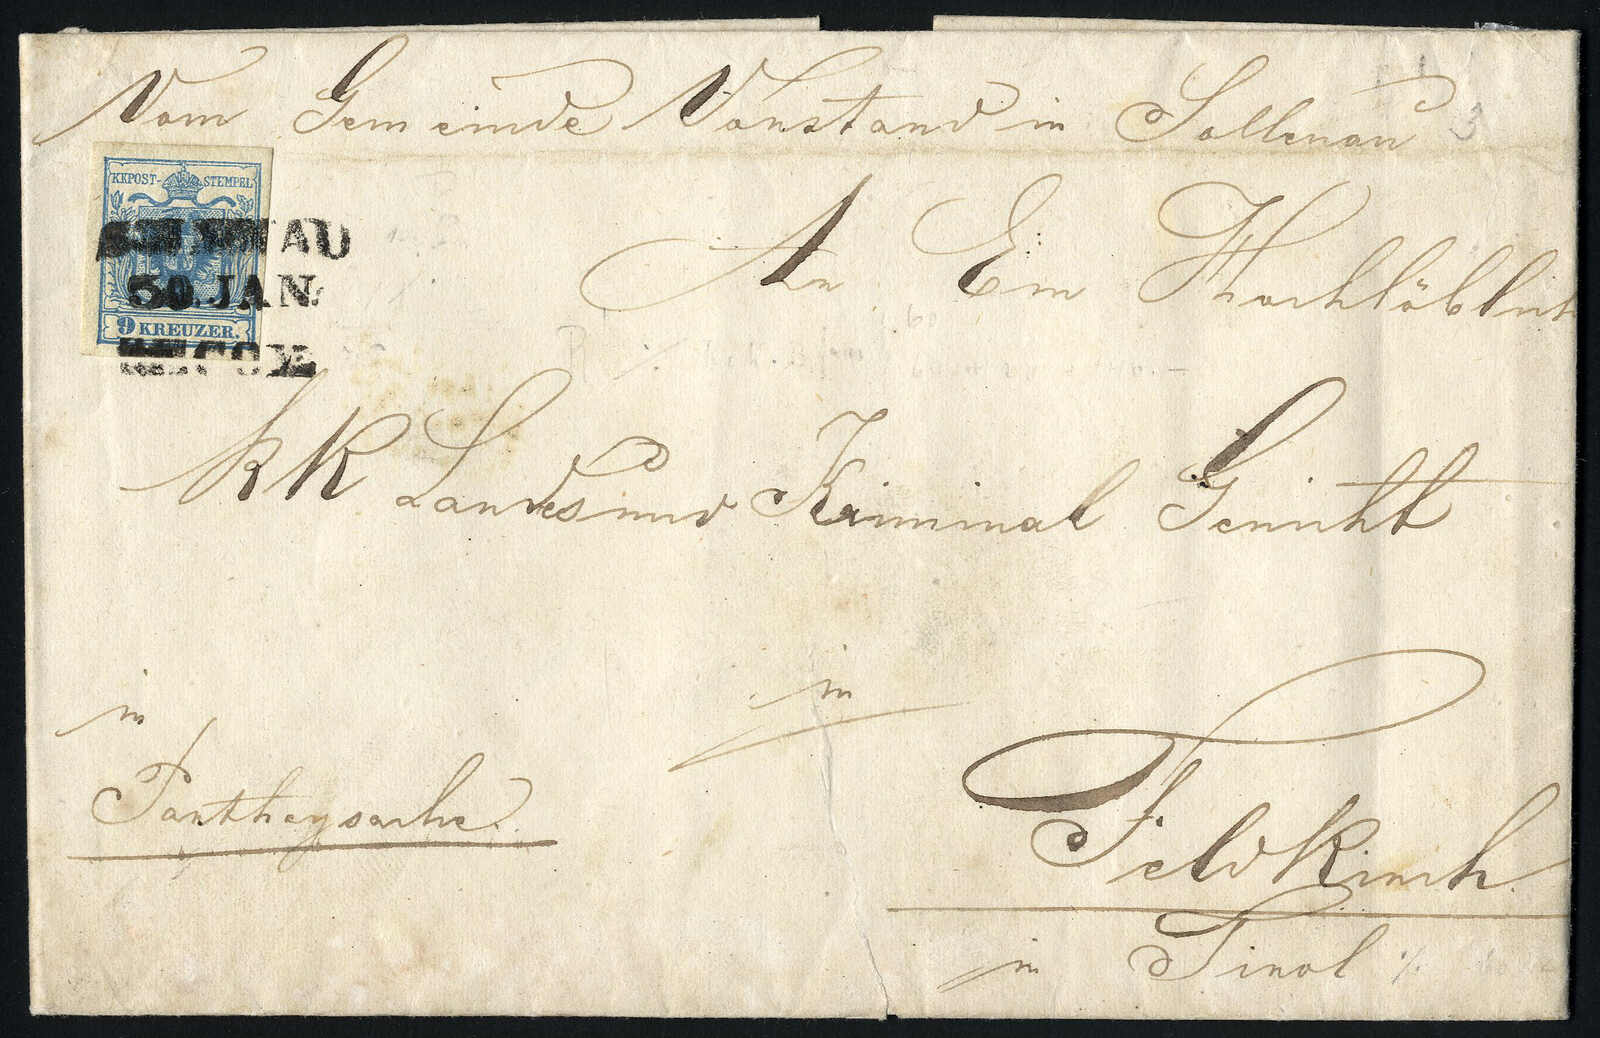 Vom Gemeinde Vorstand in Sollenau
KKPOST-STEMPEL
30. JAN.
9 KREUZER.
An Ein Hochlöblich
kk Landes und Kriminal Gericht
in
in
Partheysache
Feldkirch
in Tirol